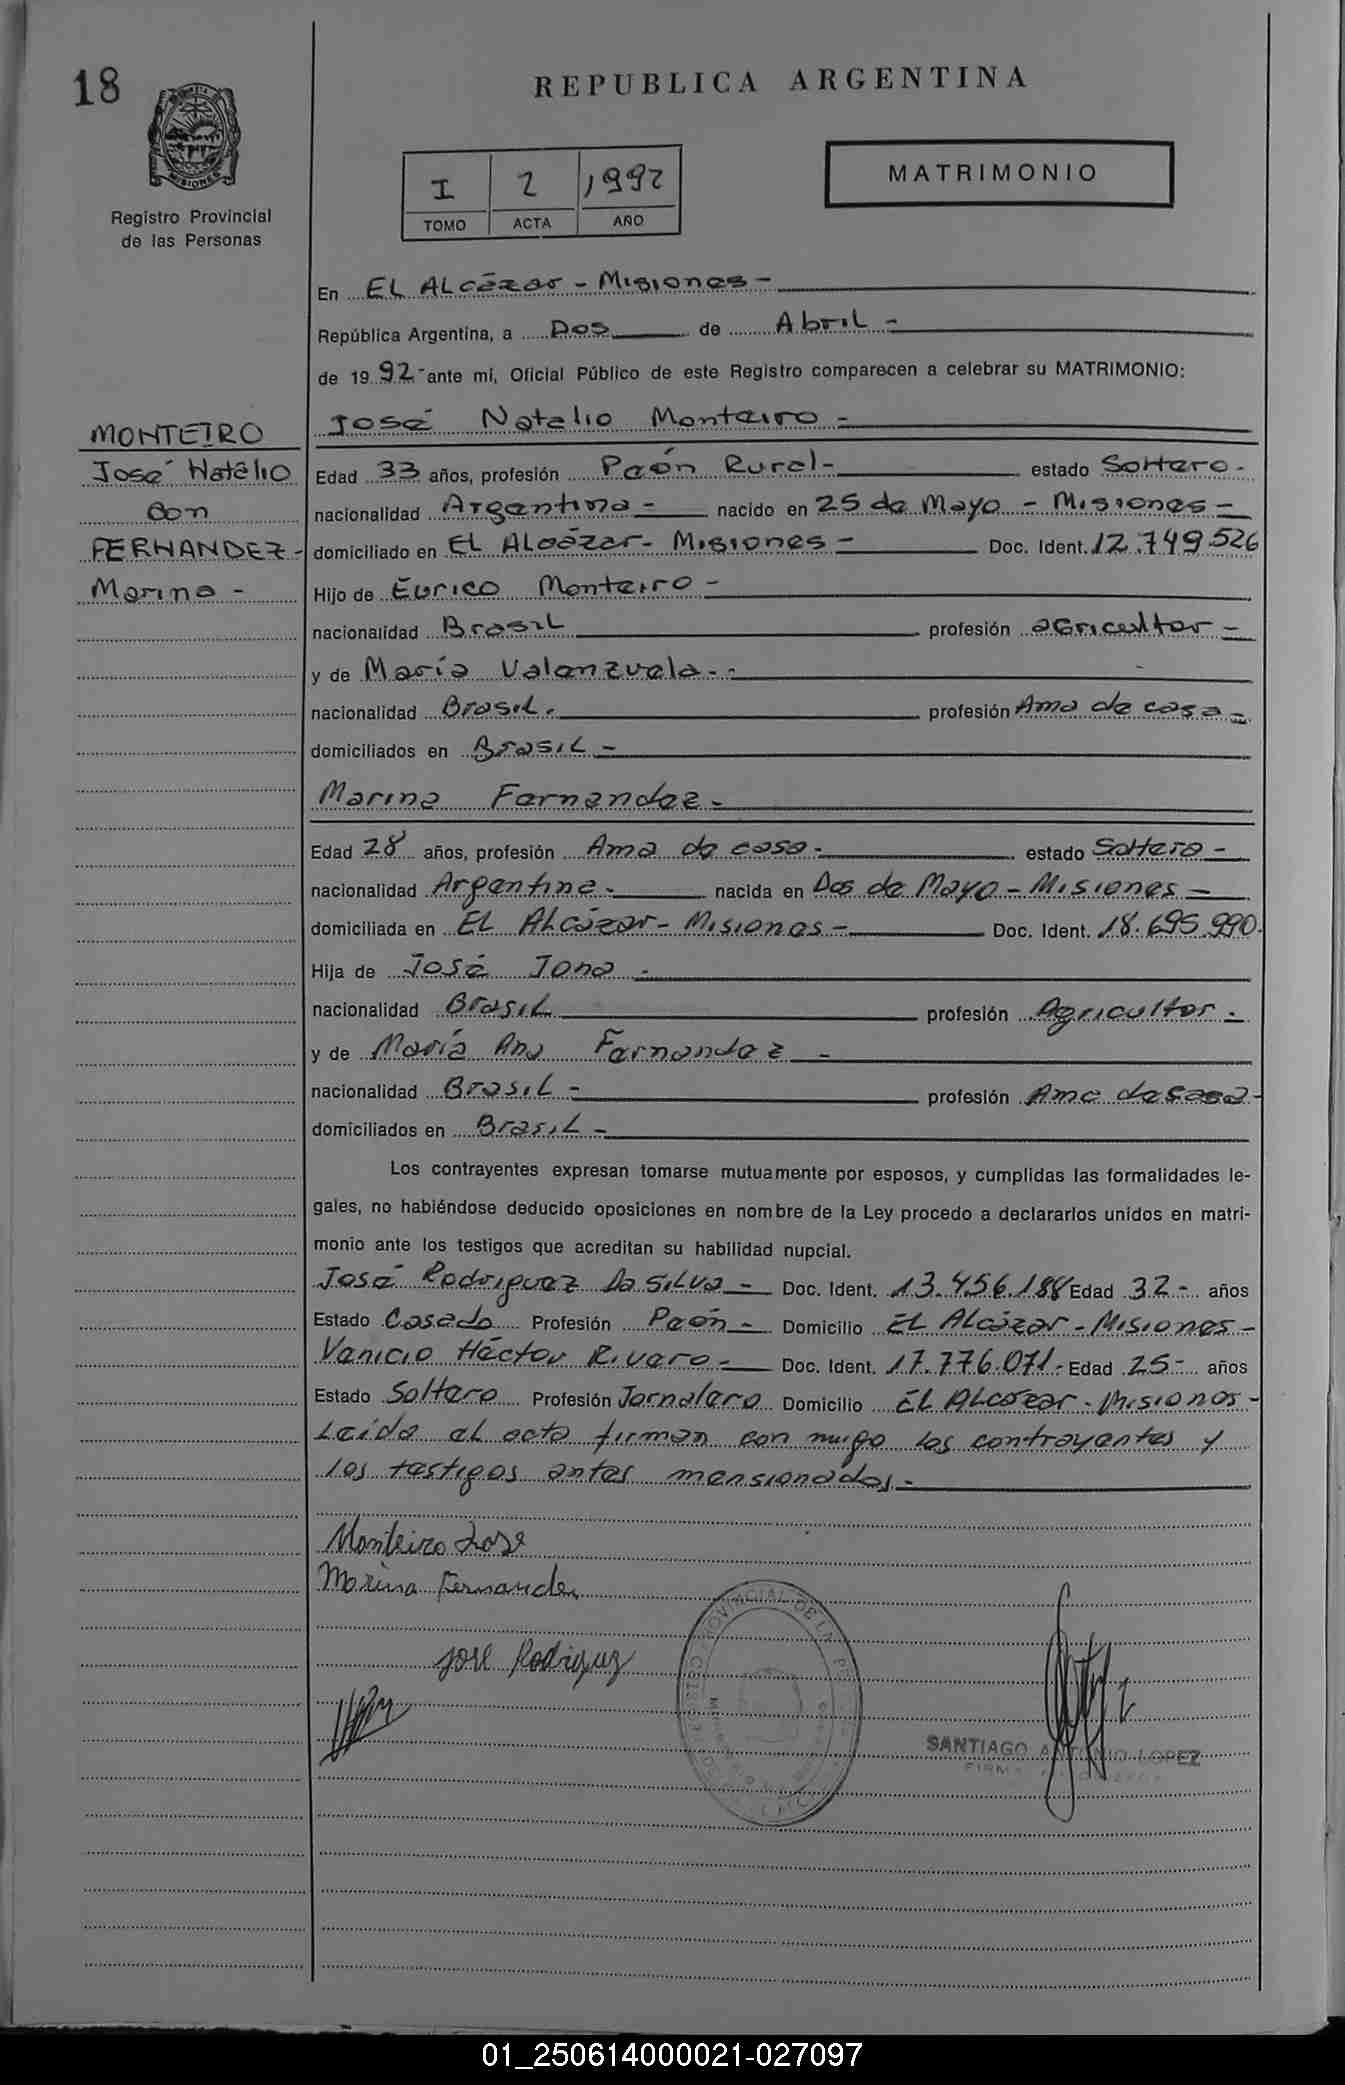 18
REPUBLICA ARGENTINA
MISIONES
Registro Provincial
de las Personas
I 2 1992
TOMO ACTA AÑO
MATRIMONIO
En EL ALcázar - Misiones -
República Argentina, a Dos de Abril -
de 1992 - ante mí, Oficial Público de este Registro comparecen a celebrar su MATRIMONIO:
José Natalio Monteiro -
MONTEIRO
José Natalio
con
FERNANDEZ -
Marina -
Edad 33 años, profesión Peón Rural - estado Soltero -
nacionalidad Argentina - nacido en 25 de Mayo - Misiones -
domiciliado en EL ALcázar - Misiones - Doc. Ident. 12.749.526
Hijo de Eurico Monteiro -
nacionalidad Brasil profesión agricultor -
y de María Valenzuela -
nacionalidad Brasil. profesión Ama de casa -
domiciliados en Brasil -
Marina Fernandez -
Edad 28 años, profesión Ama de casa - estado Soltera -
nacionalidad Argentina - nacida en Dos de Mayo - Misiones -
domiciliada en EL ALcázar - Misiones - Doc. Ident. 18.695.990.
Hija de José Jona -
nacionalidad Brasil profesión Agricultor -
y de María Ana Fernandez -
nacionalidad Brasil - profesión Ama de casa -
domiciliados en Brasil -
Los contrayentes expresan tomarse mutuamente por esposos, y cumplidas las formalidades le-
gales, no habiéndose deducido oposiciones en nombre de la Ley procedo a declararlos unidos en matri-
monio ante los testigos que acreditan su habilidad nupcial.
José Rodriguez Da Silva - Doc. Ident. 13.456.188 Edad 32 - años
Estado Casado Profesión Peón - Domicilio EL ALcázar - Misiones -
Vanicio Héctor Rivero - Doc. Ident. 17.776.071 - Edad 25 - años
Estado Soltero Profesión Jornalero Domicilio EL ALcázar - Misiones -
Leída el acta firman con migo los contrayentes y
los testigos antes mensionados -
Monteiro Jose
Marina Fernandez
Jose Rodriguez
SANTIAGO ANTONIO LOPEZ
01_250614000021-027097